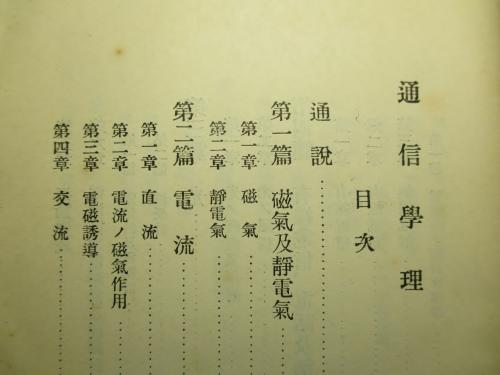 通信學理
目次
通說
第一篇 磁氣及靜電氣
第一章 磁氣
第二章 靜電氣
第二篇 電流
第一章 直流
第二章 電流ノ磁氣作用
第三章 電磁誘導
第四章 交流